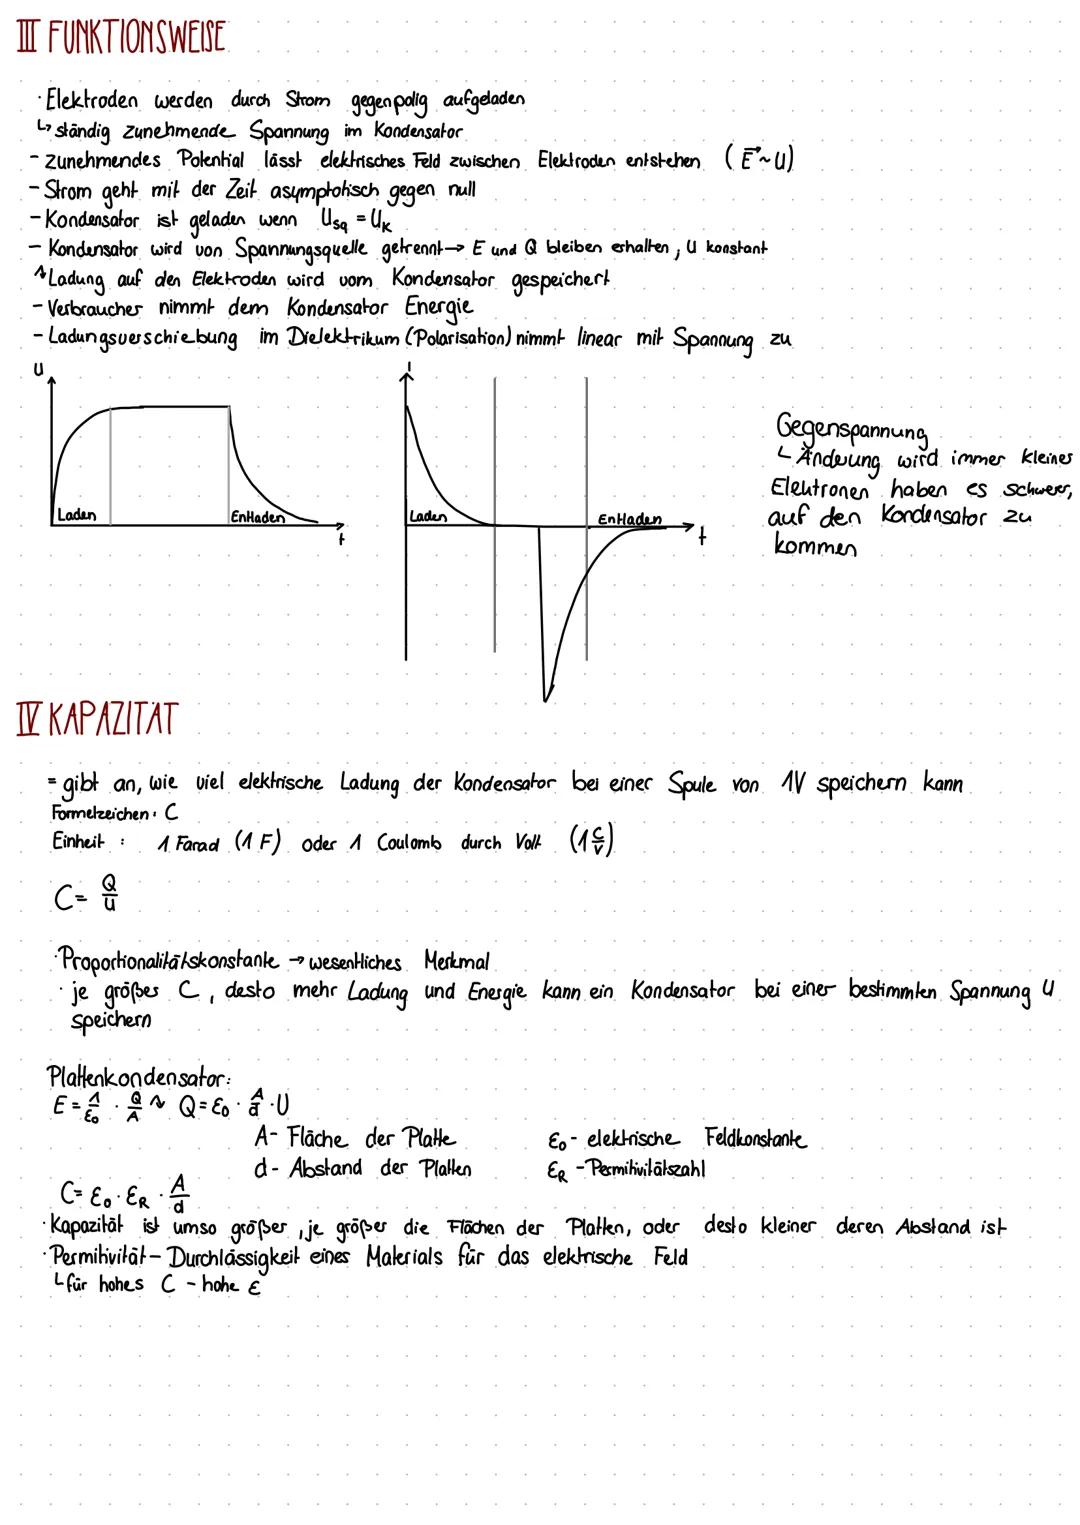 III FUNKTIONSWEISE
· Elektroden werden durch Strom gegenpolig aufgeladen
↳ ständig zunehmende Spannung im Kondensator
- zunehmendes Potential lässt elektrisches Feld zwischen Elektroden entstehen (E⃗~U)
- Strom geht mit der Zeit asymptotisch gegen null
- Kondensator ist geladen wenn U_Sq = U_K
- Kondensator wird von Spannungsquelle getrennt → E und Q bleiben erhalten, U konstant
↝ Ladung auf den Elektroden wird vom Kondensator gespeichert
- Verbraucher nimmt dem Kondensator Energie
- Ladungsverschiebung im Dielektrikum (Polarisation) nimmt linear mit Spannung zu
U
Laden
Entladen
t
I
Laden
Entladen
t
Gegenspannung
↳ Änderung wird immer kleiner
Elektronen haben es schwerer,
auf den Kondensator zu
kommen
IV KAPAZITÄT
= gibt an, wie viel elektrische Ladung der Kondensator bei einer Spule von 1V speichern kann
Formelzeichen: C
Einheit: 1 Farad (1 F) oder 1 Coulomb durch Volt (1 C/V)
C = Q/U
· Proportionalitätskonstante → wesentliches Merkmal
· je größer C, desto mehr Ladung und Energie kann ein Kondensator bei einer bestimmten Spannung U
speichern
Plattenkondensator:
E = 1/ε₀ · Q/A ↝ Q = ε₀ · A/d · U
A - Fläche der Platte
ε₀ - elektrische Feldkonstante
d - Abstand der Platten
ε_R - Permitivitätszahl
C = ε₀ · ε_R · A/d
· Kapazität ist umso größer, je größer die Flächen der Platten, oder desto kleiner deren Abstand ist
· Permitivität - Durchlässigkeit eines Materials für das elektrische Feld
↳ für hohes C - hohe ε